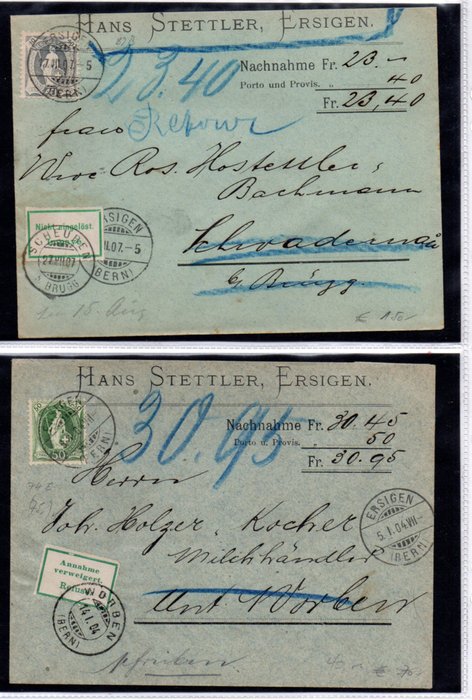 HANS STETTLER, ERSIGEN.
ERSIGEN
(BERN)
Nachnahme Fr. 23.—
Porto und Provis. „ 40
Fr. 23,40
23.40
Retour
Frau
Wwe Ros. Hostettler-
Bachmann
Schwadernau
b/ Brügg.
Nicht eingelöst.
ERSIGEN
(BERN)
SCHEUREN
b. BRÜGG
€ 150.-
HANS STETTLER, ERSIGEN.
50
ERSIGEN
(BERN)
30.95
Nachnahme Fr. 30.45
Porto u. Provis. „ 50
Fr. 30.95
Herrn
Joh. Holzer-Kocher
Milchhändler
Unt. Worben
ERSIGEN
5.I.04.VII-
(BERN)
Annahme
verweigert.
Refusé.
WORBEN
14.I.04
(BERN)